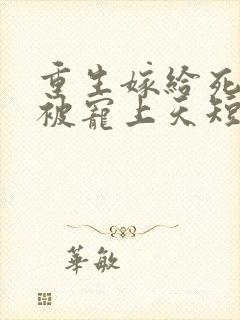 重生嫁给死
被寵上天短
華敏